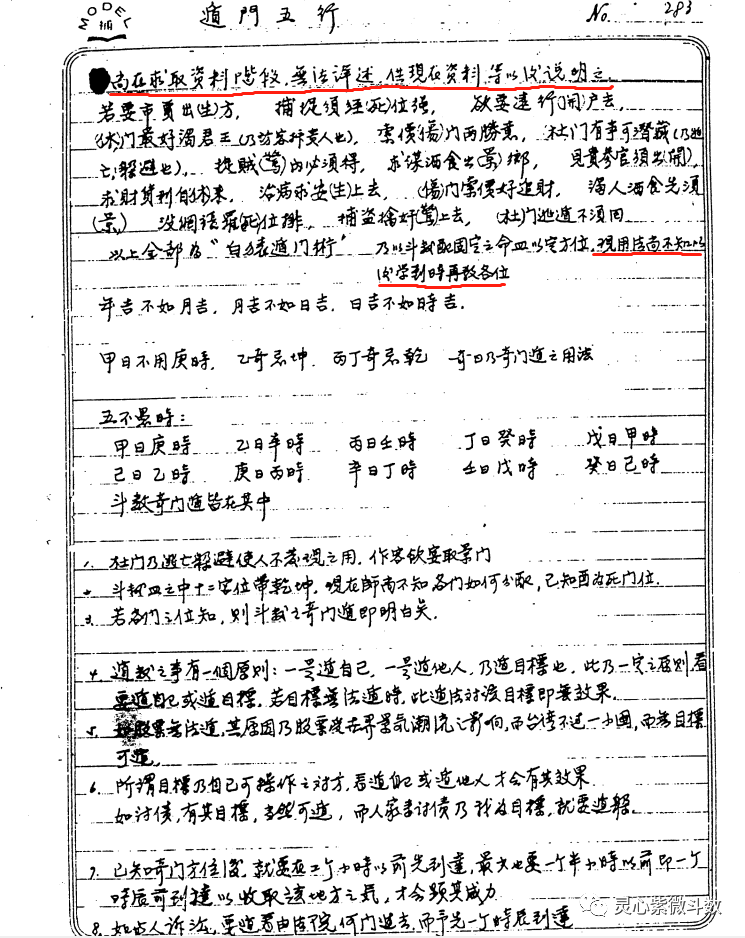 MODEL
遁門五行
No. 283
尚在求取資料階段,無法詳述,供現在資料,等以後說明之.
若要市買出(生)方, 捕捉須經(死)位強, 欲要遠行(開)戶去,
(休)門最好謁君王(乃訪客仵貴人也), 索債(傷)門內兩勝意, 杜門有事可潛藏(乃逃
亡,躲避也), 捉賊(驚)內必須得, 求謀酒食出(景)鄉, 見貴参官須出(開),
求財貨利自休來, 治病求安(生)上去, (傷)門索債好追財, 謁人酒食先須
(景) 位排, 捕盜擒奸(驚)上去, (杜)門逃遁不須回
以上全部為"白猿遁門術" 乃以斗数配固定之命皿以定方位,現用法尚不知以
後学到時再教各位
年吉不如月吉, 月吉不如日吉, 日吉不如時吉.
甲日不用庚時, 乙奇忌坤. 丙丁奇忌乾 奇日乃奇门遁之用法
五不景時:
甲日庚時 乙日辛時 丙日壬時 丁日癸時 戊日甲時
己日乙時 庚日丙時 辛日丁時 壬日戊時 癸日己時
斗数奇门遁皆在其中
1. 杜门乃逃亡躲避使人不發現之用, 作客飲宴取景门
2. 斗数皿之中十二宮位帶乾坤, 現在師尚不知各门如何分配, 已知酉為死门位.
3. 若各门之位知, 則斗数之奇门遁即明白矣.
4. 遁数之事有一個原則: 一是遁自己, 一是遁他人, 乃遁目標也, 此乃一定之原則,看
要遁自己或遁目標, 若目標無法遁時, 此遁法对該目標即無效果.
5. 如股票無法遁,其原因乃股票受世界景氣潮流之影响,而台湾不过一小國,而無目標
可遁,
6. 所謂目標乃自己可操作之对方,看遁自己或遁他人才会有其效果
如討債,有其目標,当然可遁, 而人家來討債乃我為目標,就要遁躲.
7. 已知奇门方位後, 就要在二个小時以前先到達, 最大也要一个半小時以前即一个
時辰前到達以收取該地方之氣, 才会頭其威力
8. 如占人訴訟, 要遁看由法院何门進去, 而早先一个時辰到達
灵心紫微斗数